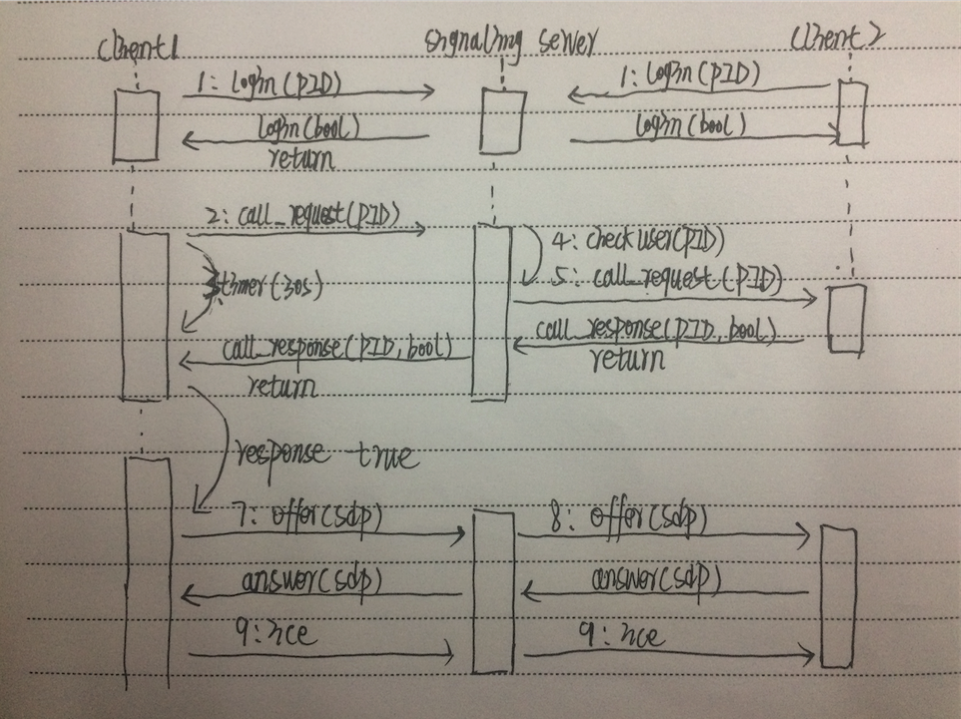 client1 signaling server client2
1: login(PID) 1: login(PID)
login(bool) login(bool)
return
2: call_request(PID)
4: check user(PID)
3: timer(30s) 5: call_request(PID)
call_response(PID, bool) call_response(PID, bool)
return return
response true
7: offer(sdp) 8: offer(sdp)
answer(sdp) answer(sdp)
9: ice 9: ice